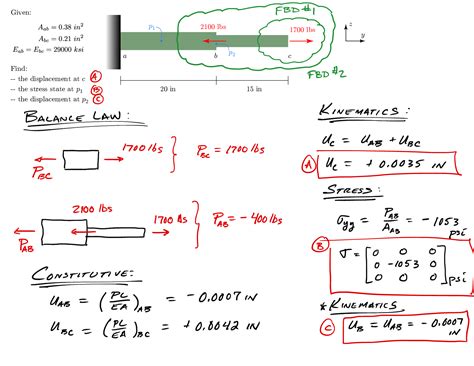 Given:
A_ab = 0.38 in²
A_bc = 0.21 in²
E_ab = E_bc = 29000 ksi
Find:
-- the displacement at c (A)
-- the stress state at p₁ (B)
-- the displacement at p₂ (C)
FBD #1
2100 lbs
1700 lbs
p₁
p₂
a
b
c
z
y
FBD #2
20 in
15 in
BALANCE LAW:
P_BC
1700 lbs
P_BC = 1700 lbs
2100 lbs
P_AB
1700 lbs
P_AB = -400 lbs
CONSTITUTIVE:
U_AB = (PL/EA)_AB = -0.0007 IN
U_BC = (PL/EA)_BC = +0.0042 IN
KINEMATICS:
U_C = U_AB + U_BC
(A) U_C = +0.0035 IN
STRESS:
σ_yy = P_AB/A_AB = -1053 psi
(B)
σ = [0 0 0
0 -1053 0
0 0 0] psi
*KINEMATICS
(C) U_B = U_AB = -0.0007 IN